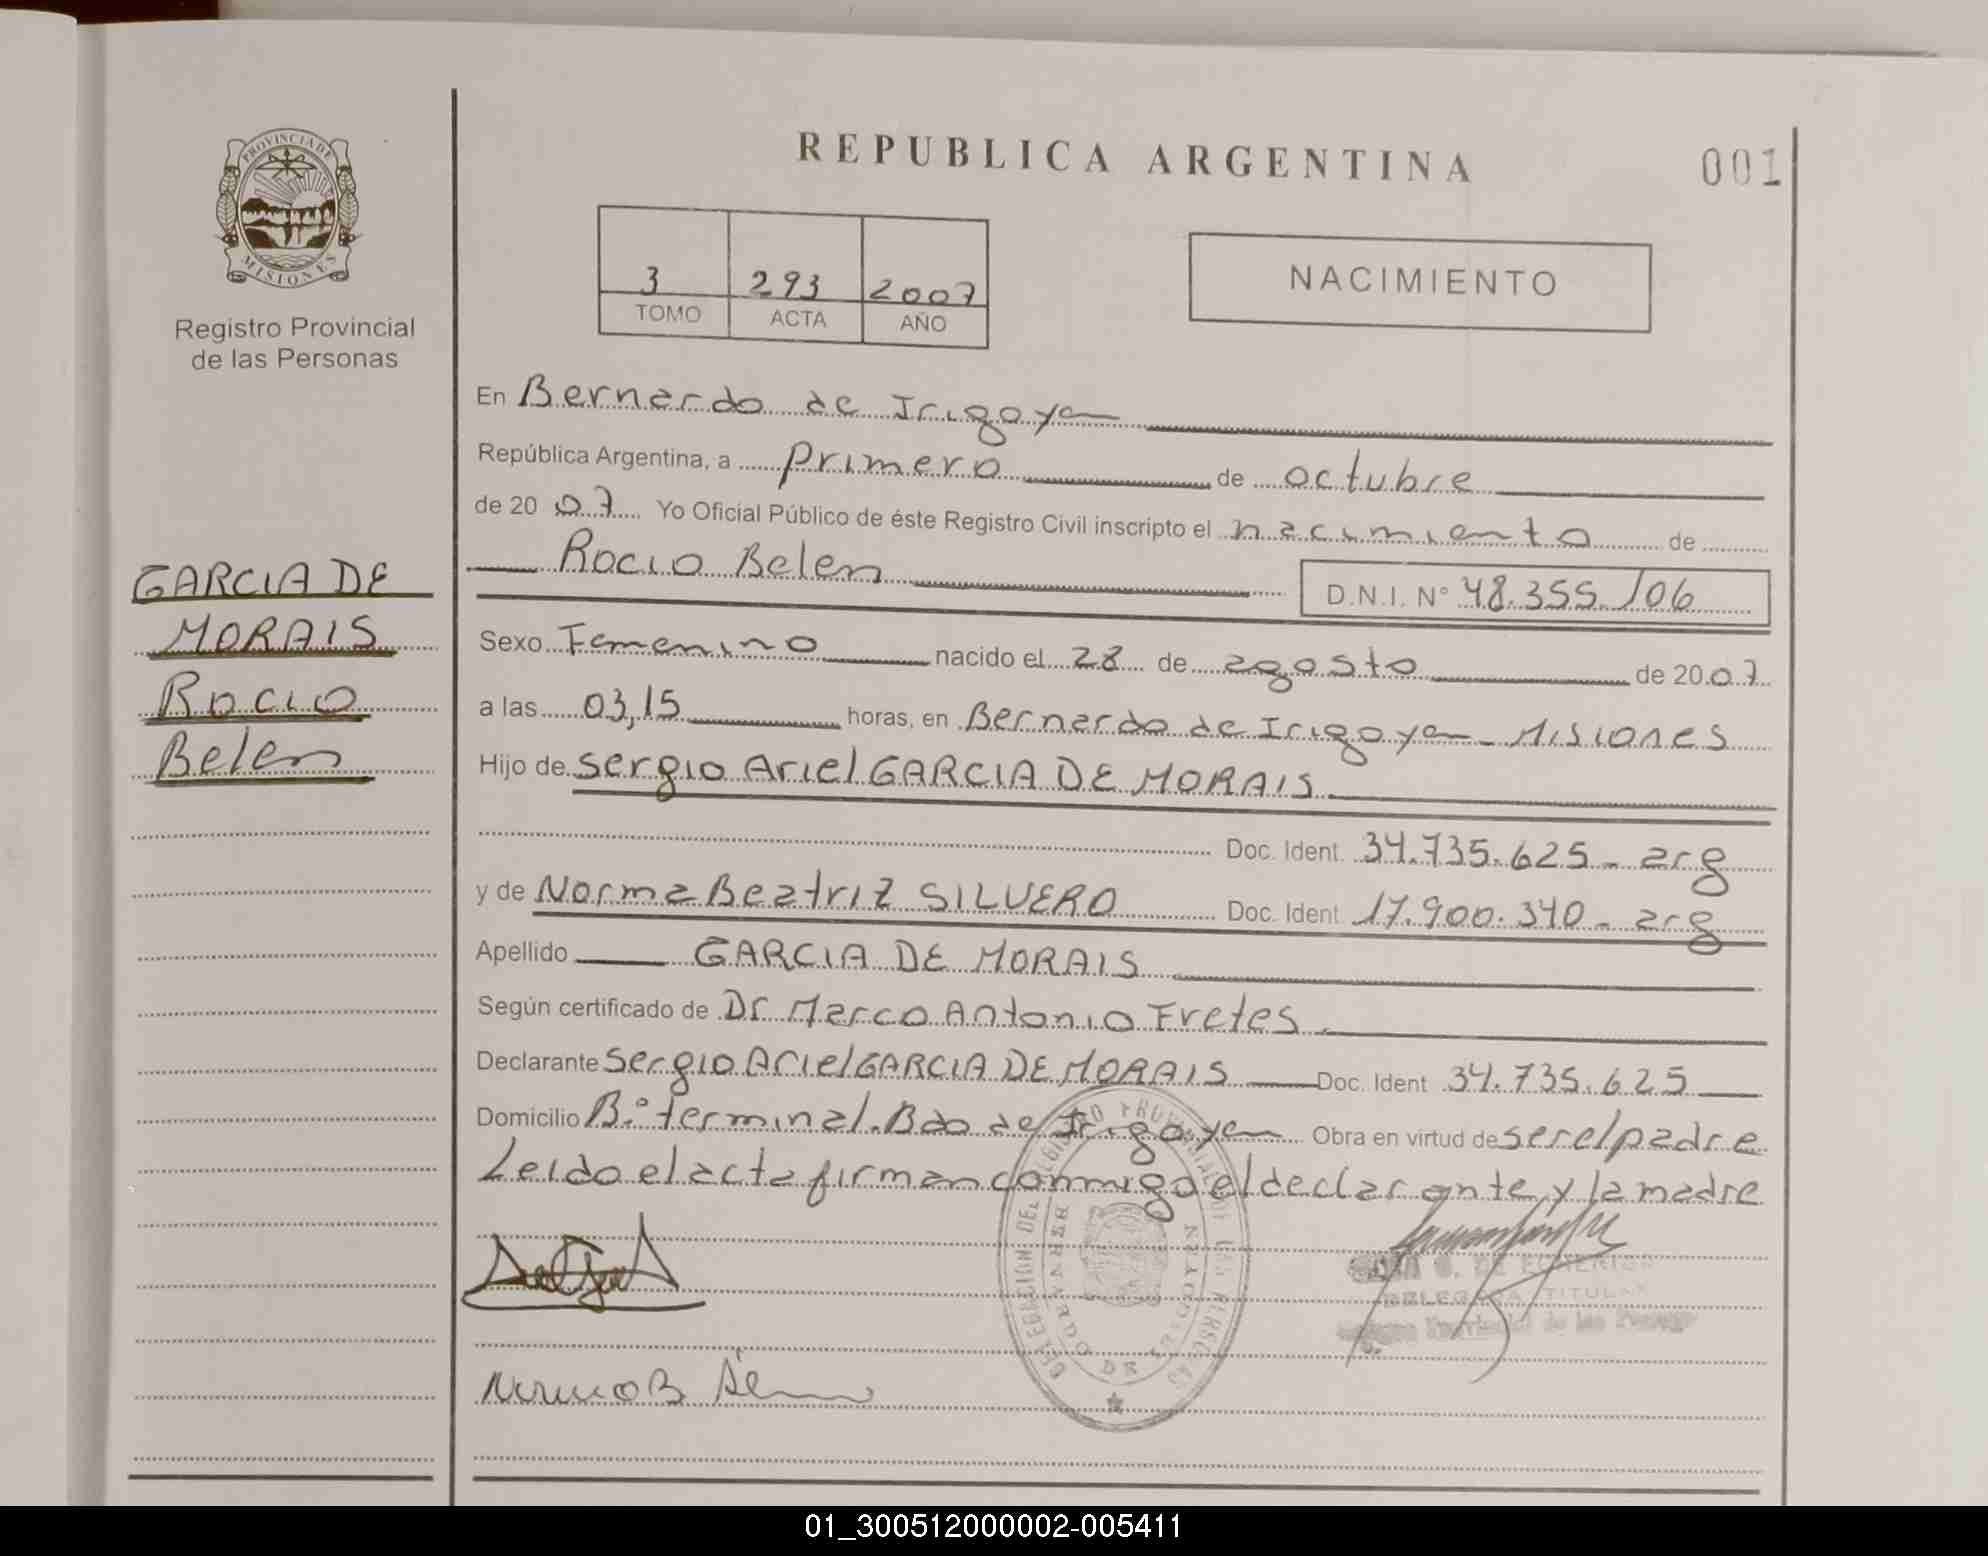 REPUBLICA ARGENTINA
001
PROVINCIA DE
MISIONES
Registro Provincial
de las Personas
3 293 2007
TOMO ACTA AÑO
NACIMIENTO
En Bernardo de Irigoyen
República Argentina, a primero de octubre
de 20 07 Yo Oficial Público de éste Registro Civil inscripto el nacimiento de
Rocio Belen D.N.I. N° 48.355.106
GARCIA DE
MORAIS
Rocio
Belen
Sexo Femenino nacido el 28 de agosto de 20 07
a las 03,15 horas, en Bernardo de Irigoyen - Misiones
Hijo de Sergio Ariel GARCIA DE MORAIS
Doc. Ident. 34.735.625 - arg
y de Norma Beatriz SILVERO Doc. Ident 17.900.340 - arg
Apellido GARCIA DE MORAIS
Según certificado de Dr Marco Antonio Fretes
Declarante Sergio Ariel GARCIA DE MORAIS Doc. Ident 34.735.625
Domicilio B.° terminal. Bdo de Irigoyen Obra en virtud de ser el padre
Leido el acta firman conmigo el declarante, y la madre
DELEGADA TITULAR
01_300512000002-005411